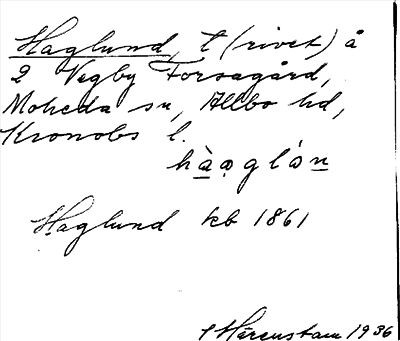 Haglund, t (rivet) å
2 Vegby Forsagård,
Moheda sn, Allbo hd,
Kronobs l.
hàǫglón
Haglund kb 1861
Härenstam 1936